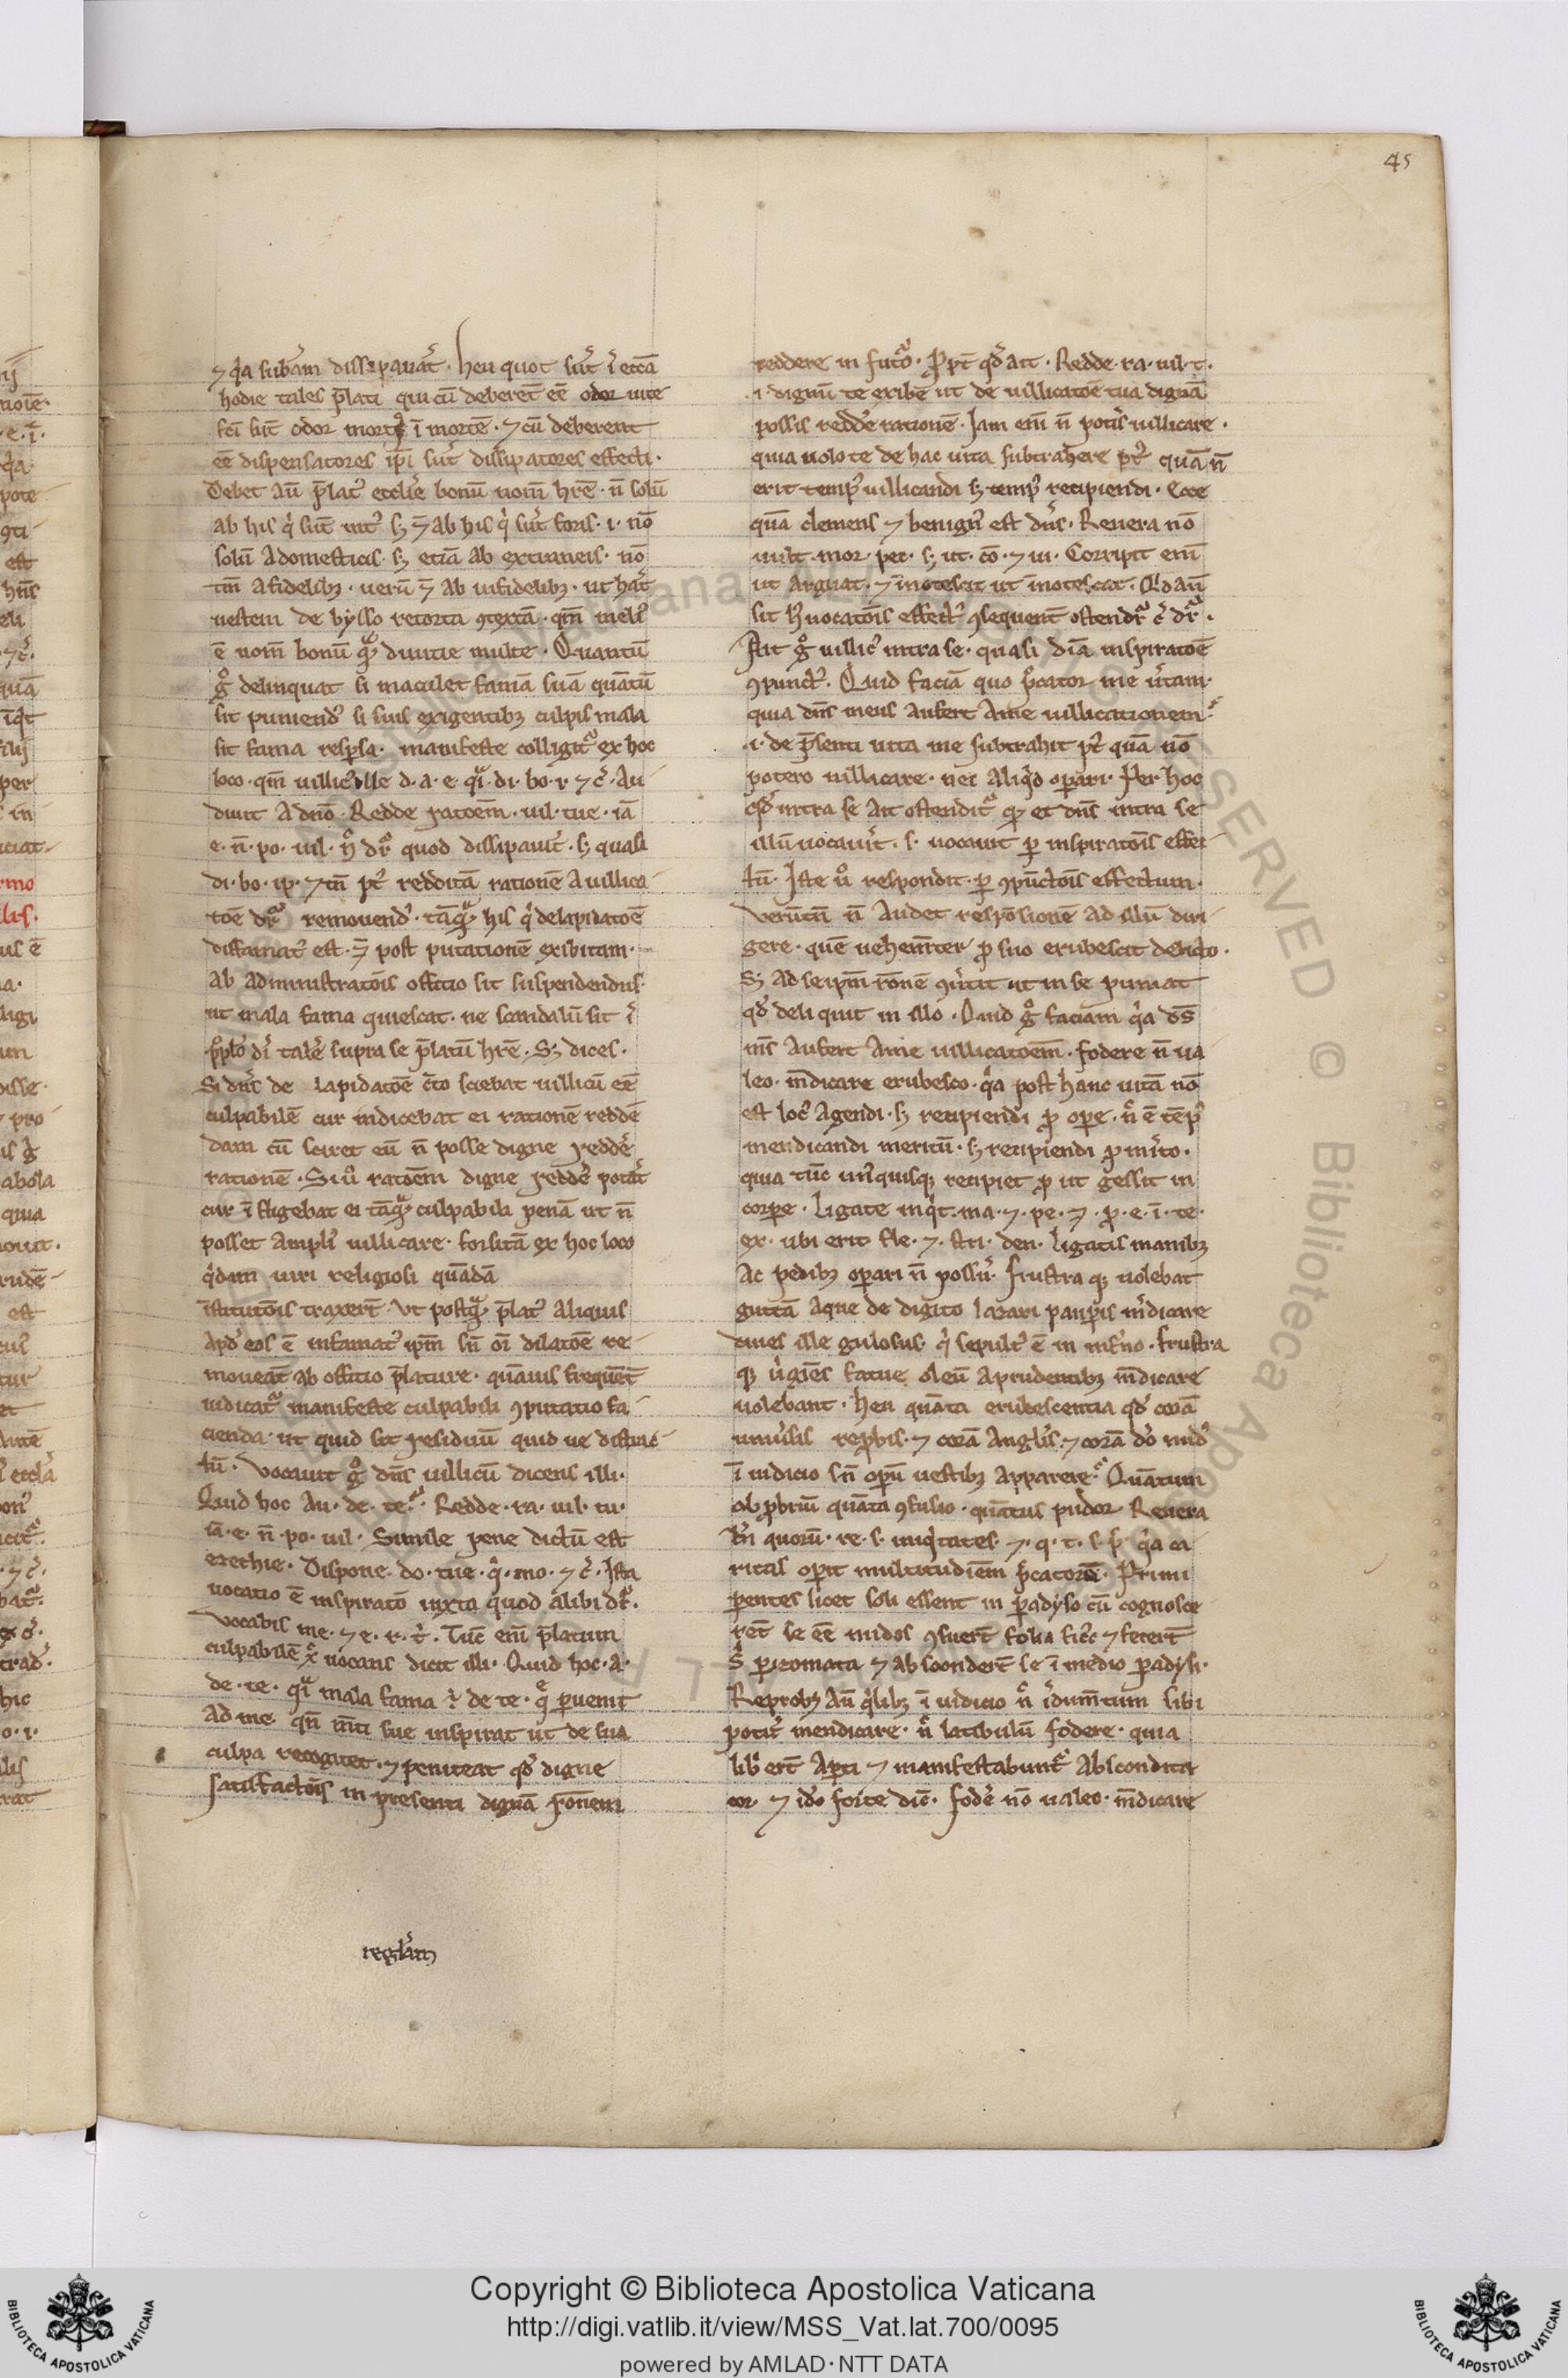 45
⁊ q̇a subam dissipauat̉. heu quot sūt̉ ī ecca
hodie tales p̄lati qui cū deberēt eē odor uite
fci sūt odor mortꝭ ī mortē. ⁊ cū deberent
eē dispensatores ip̄i sūt dissipatores effecti.
Debet aū p̄lat̉ ecclie bonū nom̄ hr̄e. n̄ solū
ab his q̇ sūt int̉ sꝫ ⁊ ab his q̇ sūt foris. i. nō
solū a domesticis. sꝫ etiā ab extraneis. nō
tm̄ a fidelibꝫ. uerū ⁊ ab infidelibꝫ. ut hat̉
uestem de bysso retorta ꝯtextā. qm̄ melỉ
ē nom̄ bonū qͣꝫ diuitie multe. Quantū
gͦ delinquat si maculet famā suā quātū
sit puniend̉ si suis exigentibꝫ culpis mala
sit fama resꝑsa. manifeste colligit̉ ex hoc
loco. qm̄ uillic̉ ille d. a. e. qͣi. di. bo. i. ⁊ c̉. Au
diuit a dn̄o. Redde ratoēm. uil. tue. iā
e. n̄. po. uil. n̉ dr̄ quod dissipauit. sꝫ quasi
di. bo. ip. ⁊ tn̄ pt̉ redditā rationē a uillica
toē dr̄ remouend̉. tāqͣꝫ his q̇ de lapidatoē
diffamat̉ est. ⁊ post putationē exibitam.
ab administratōis offitio sit suspendendus.
ut mala fama quiescat. ne scandalū sit ī
pp̄lo di̇ talē supra se p̄latū hr̄e. Sꝫ dices.
Si dn̄s de lapidatoē c̉to sciebat uillicū eē
culpabilē cur indicebat ei rationē redden
dam cū sciret eū n̄ posse digne redde̓
rationē. Si uͦ ratoēm digne redde̓ potat̉
cur ī fligebat ei tāqͣꝫ culpabili penā ut n̄
posset amplỉ uillicare. forsitā ex hoc loco
q̇dam uiri religiosi quādā
īstitutōis traxert̄. Ut postqͣꝫ p̄lat̉ aliquis
apd̉ eos ē infamat̉ ip̄m sn̄ oī dilatoē re
moueāt ab offitio p̄lature. quāuis frequēt̄
iudicat̉ manifeste culpabili ꝯputatio fa
cienda. ut quid sit residuū quid ue distrac
tū. Vocauit gͦ dn̄s uillicū dicens illi.
Quid hoc au. de. te. Redde. ra. uil. tu.
iā. e. n̄. po. uil. Simile pene dictū est
ezechie. Dispone. do. tue. q̇. mo. ⁊ c̉. Ista
uocatio ē inspiratō iuxta quod alibi dr̄.
Vocabis me. ⁊ e. r. t̉. Tūc eni̅ p̄latum
culpabilē x̉ uocans dicit illi. Quid hoc. a.
de. te. qͣi mala fama ē de te. q̉ ꝑuenit
ad me qn̄ mti̅ sue inspirat ut de sua
culpa recogitet. ⁊ peniteat qd̉ digne
satisfactōis in presenti dignā rōnem
reglam̄
reddere in fut̉o. ꝓpt̄ qd̉ ait. Redde. ra. uil. t.
.i. dignū te exibē ut de uillicatoē tua dignā
possis redde̓ rationē. Iam eni̅ n̄ potis̉ uillicare.
quia uolo te de hac uita subtrahere pt̉ quā n̄
erit temp̉ uillicandi sꝫ temp̉ recipiendi. Ecce
quā clemens ⁊ benign̉ est dn̄s. Reuera nō
uult. mor. pec. sꝫ ut. cō. ⁊ ui. Corripit eni̅
ut arguat. ⁊ īnotescit ut īnotescat. Qd̉ aū
sit h̉ uocatōis effect̉ ꝯsequent̄ ostendr̄ c̉ dr̄.
Ait gͦ uillic̉ intra se. quasi diā inspiratoē
ꝯpunct̉. Quid faciā quo p̄cator me u̓tam
quia dn̄s meus aufert a me uillicationem.
.i. de p̄senti uita me subtrahit pt̉ quā nō
potero uillicare. nec aliq̇d oꝑari. Per hoc
qd̉ intra se ait ostendit̉ qꝫ et dn̄s intra se
illū uocauit̉. s. uocauit ꝑ inspiratōis effec
tū. Iste uͦ respondit. ꝑ ꝯpūctōis effectum.
Verūtn̄ n̄ audet respōsionē ad illū diri
gere. quē uehem̄ter ꝓ suo erubescit delicto.
Sꝫ ad seip̄m rōnē ꝯu̓tit ut in se puniat
qd̉ deliquit in illo. Quid gͦ faciam q̇a dn̄s
ms̄ aufert a me uillicatoēm. fodere n̄ ua
leo. m̄dicare erubesco. q̇a post hanc uitā nō
est loc̉ agendi. sꝫ recipiendi ꝓ oꝑe. n̉ ē tēp̉
mendicandi meritū. sꝫ recipiendi ꝓ mi̓to.
quia tūc un̉quisqꝫ recipiet ꝓ ut gessit in
corꝑe. Ligate inq̇t. ma. ⁊. pe. ⁊. ꝓ. e. ī. te.
ex. ubi erit fle. ⁊. stri. den. Ligatis manibꝫ
ac pedibꝫ oꝑari n̄ possūt̉. frustra qꝫ uolebat
guttā aque de digito lazari pauꝑis m̄dicare
diues ille gulosus. q̇ sepult̉ ē in inf̓no. frustra
qꝫ u̓gies̄ fatue oleū a prudentibꝫ m̄dicare
uolebant. heu quāta erubescentia qd̉ corā
uniu̓sis reꝓbis. ⁊ corā angl̉is. ⁊ corā do̓ nud̉
ī iudicio sn̄ opū uestibꝫ apparere. Quātum
obꝓbriū quāta ꝯfusio. quātus pudor. Reuera
bn̄ quorū. re. s. iniq̇tates. ⁊. q. t. s. p. q̇a ca
ritas oꝑit multitudiēm p̄catorū. Primi
ꝑentes licet soli essent in ꝑadyso cū cognosce
rēt se eē nudos ꝯsuert̄ folia fic̉ ⁊ fecert̄
s̉ ꝑizomata ⁊ abscondert̄ se ī medio ꝑadysi.
Reprobꝫ aū q̇libꝫ ī iudicio n̉ idum̄tum sibi
potit̉ mendicare. n̉ latibulū fodere. quia
lib̉ erūt aꝑti ⁊ manifestabunt̉ abscondita
cor. ⁊ ido̓ forte dic̄. fode̓ nō ualeo. m̄dicare
Copyright © Biblioteca Apostolica Vaticana
http://digi.vatlib.it/view/MSS_Vat.lat.700/0095
powered by AMLAD·NTT DATA